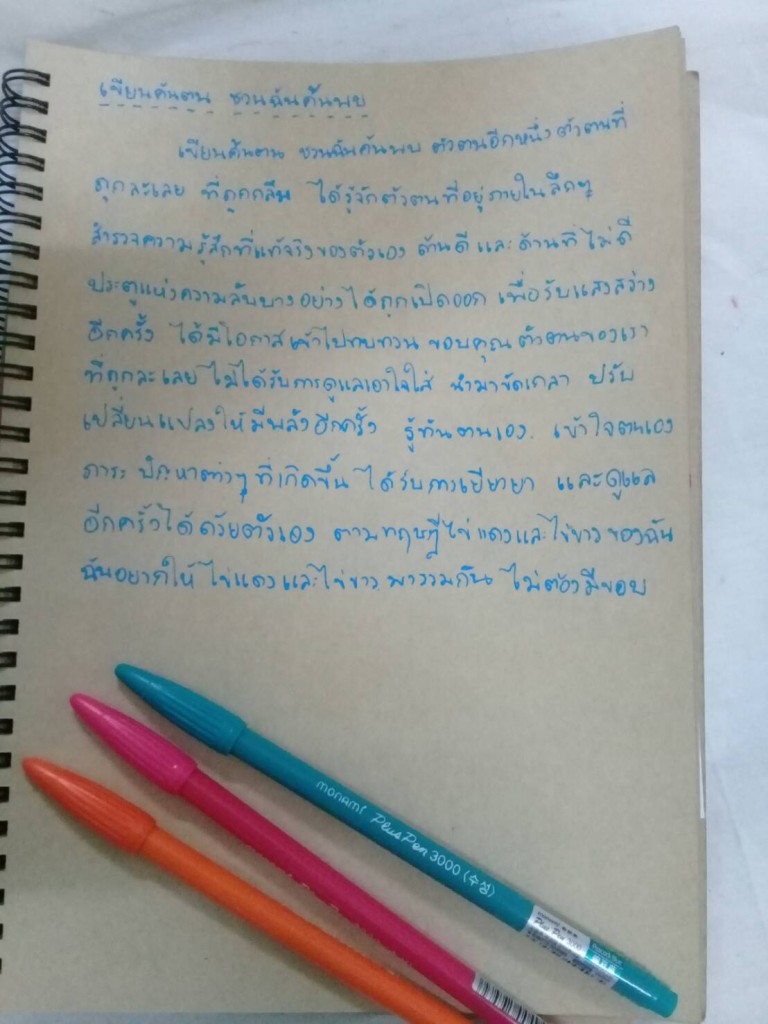 เขียนค้นตน ชวนฉันค้นพบ
เขียนค้นตน ชวนฉันค้นพบ ตัวตนอีกหนึ่งตัวตนที่
ถูกละเลย ที่ถูกกลืน ได้รู้จักตัวตนที่อยู่ภายในลึกๆ
สำรวจความรู้สึกที่แท้จริงของตัวเอง ด้านดี และด้านที่ไม่ดี
ประตูแห่งความลับบางอย่างได้ถูกเปิดออก เพื่อรับแสงสว่าง
อีกครั้ง ได้มีโอกาสเข้าไปทบทวน ขอบคุณ ตัวตนของเรา
ที่ถูกละเลย ไม่ได้รับการดูแลเอาใจใส่ นำมาขัดเกลา ปรับ
เปลี่ยนแปลงให้มีพลังอีกครั้ง รู้ทันตนเอง เข้าใจตนเอง
ภาระ ปัญหาต่างๆ ที่เกิดขึ้น ได้รับการเยียวยา และดูแล
อีกครั้งได้ด้วยตัวเอง ตามทฤษฎีไข่แดงและไข่ขาวของฉัน
ฉันอยากให้ ไข่แดงและไข่ขาว มารวมกัน ไม่ต้องมีขอบ
monami Plus Pen 3000 (수성)